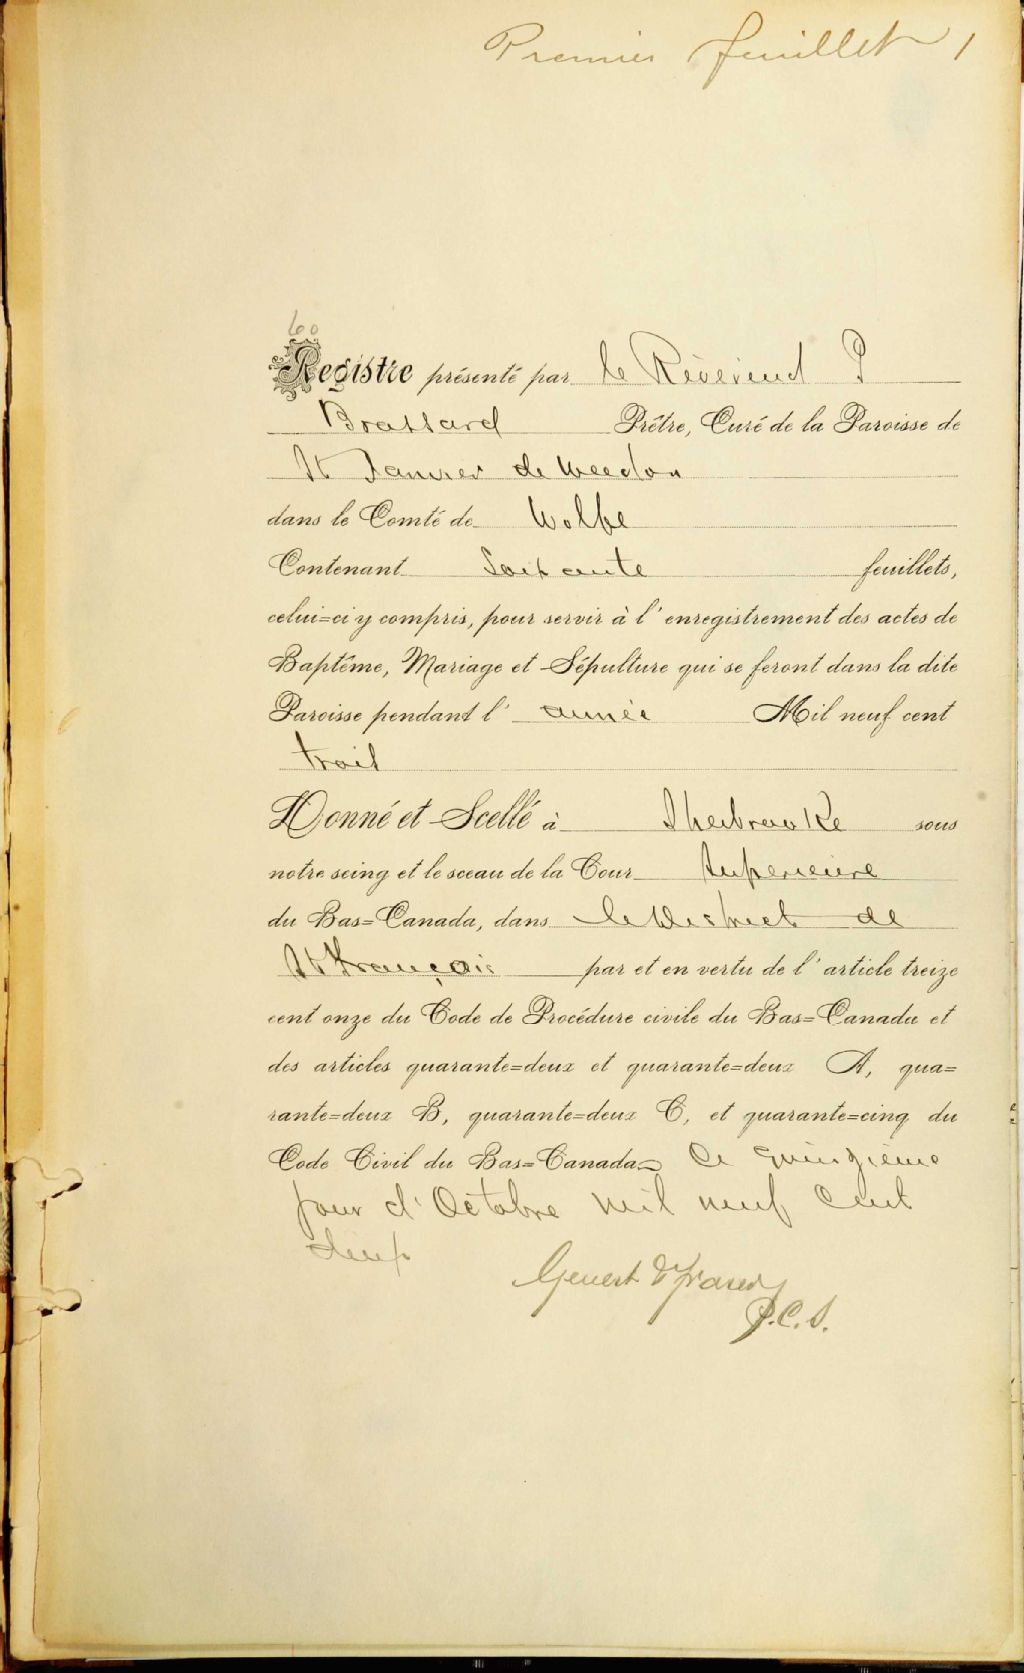 Premier feuillet 1
60
Registre présenté par le Révérend P
Brassard Prêtre, Curé de la Paroisse de
St Janvier de Weedon
dans le Comté de Wolfe
Contenant Soixante feuillets,
celui=ci y compris, pour servir à l'enregistrement des actes de
Baptême, Mariage et Sépulture qui se feront dans la dite
Paroisse pendant l'année Mil neuf cent
trois
Donné et Scellé à Sherbrooke sous
notre seing et le sceau de la Cour Superieure
du Bas=Canada, dans le District de
St François par et en vertu de l'article treize
cent onze du Code de Procédure civile du Bas=Canada et
des articles quarante=deux et quarante=deux A, qua=
rante=deux B, quarante=deux C, et quarante=cinq du
Code Civil du Bas=Canada Ce quinzieme
jour d'Octobre mil neuf Cent
deux
P.C.S.